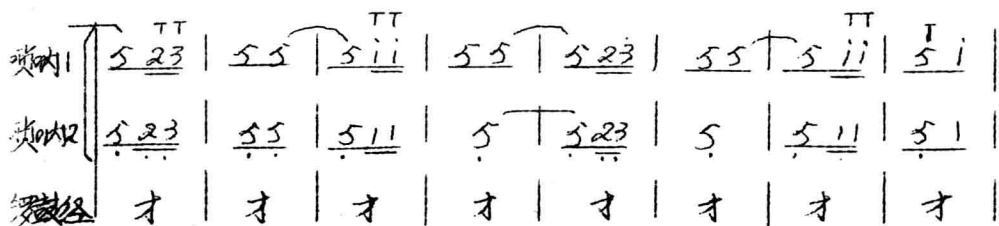 TT TT TT T
唢呐1 5 23 | 5 5 | 5 i i | 5 5 | 5 23 | 5 5 | 5 i i | 5 i |
唢呐2 5 23 | 5 5 | 5 1 1 | 5 | 5 23 | 5 | 5 1 1 | 5 1 |
锣鼓经 才 | 才 | 才 | 才 | 才 | 才 | 才 | 才 |